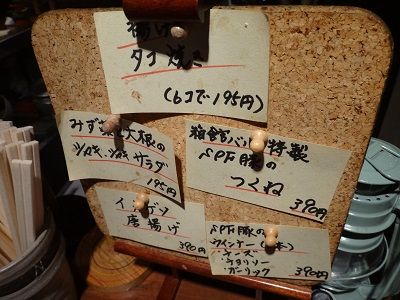 揚げ
タコ焼き
(6コで195円)
みず 大根の
サラダ
195円
箱館バル 特製
SPF豚の
つくね
390円
イ ゲソ
唐揚げ
390円
SPF豚の
ウインナー
チーズ
チョリソー
ガーリック
390円